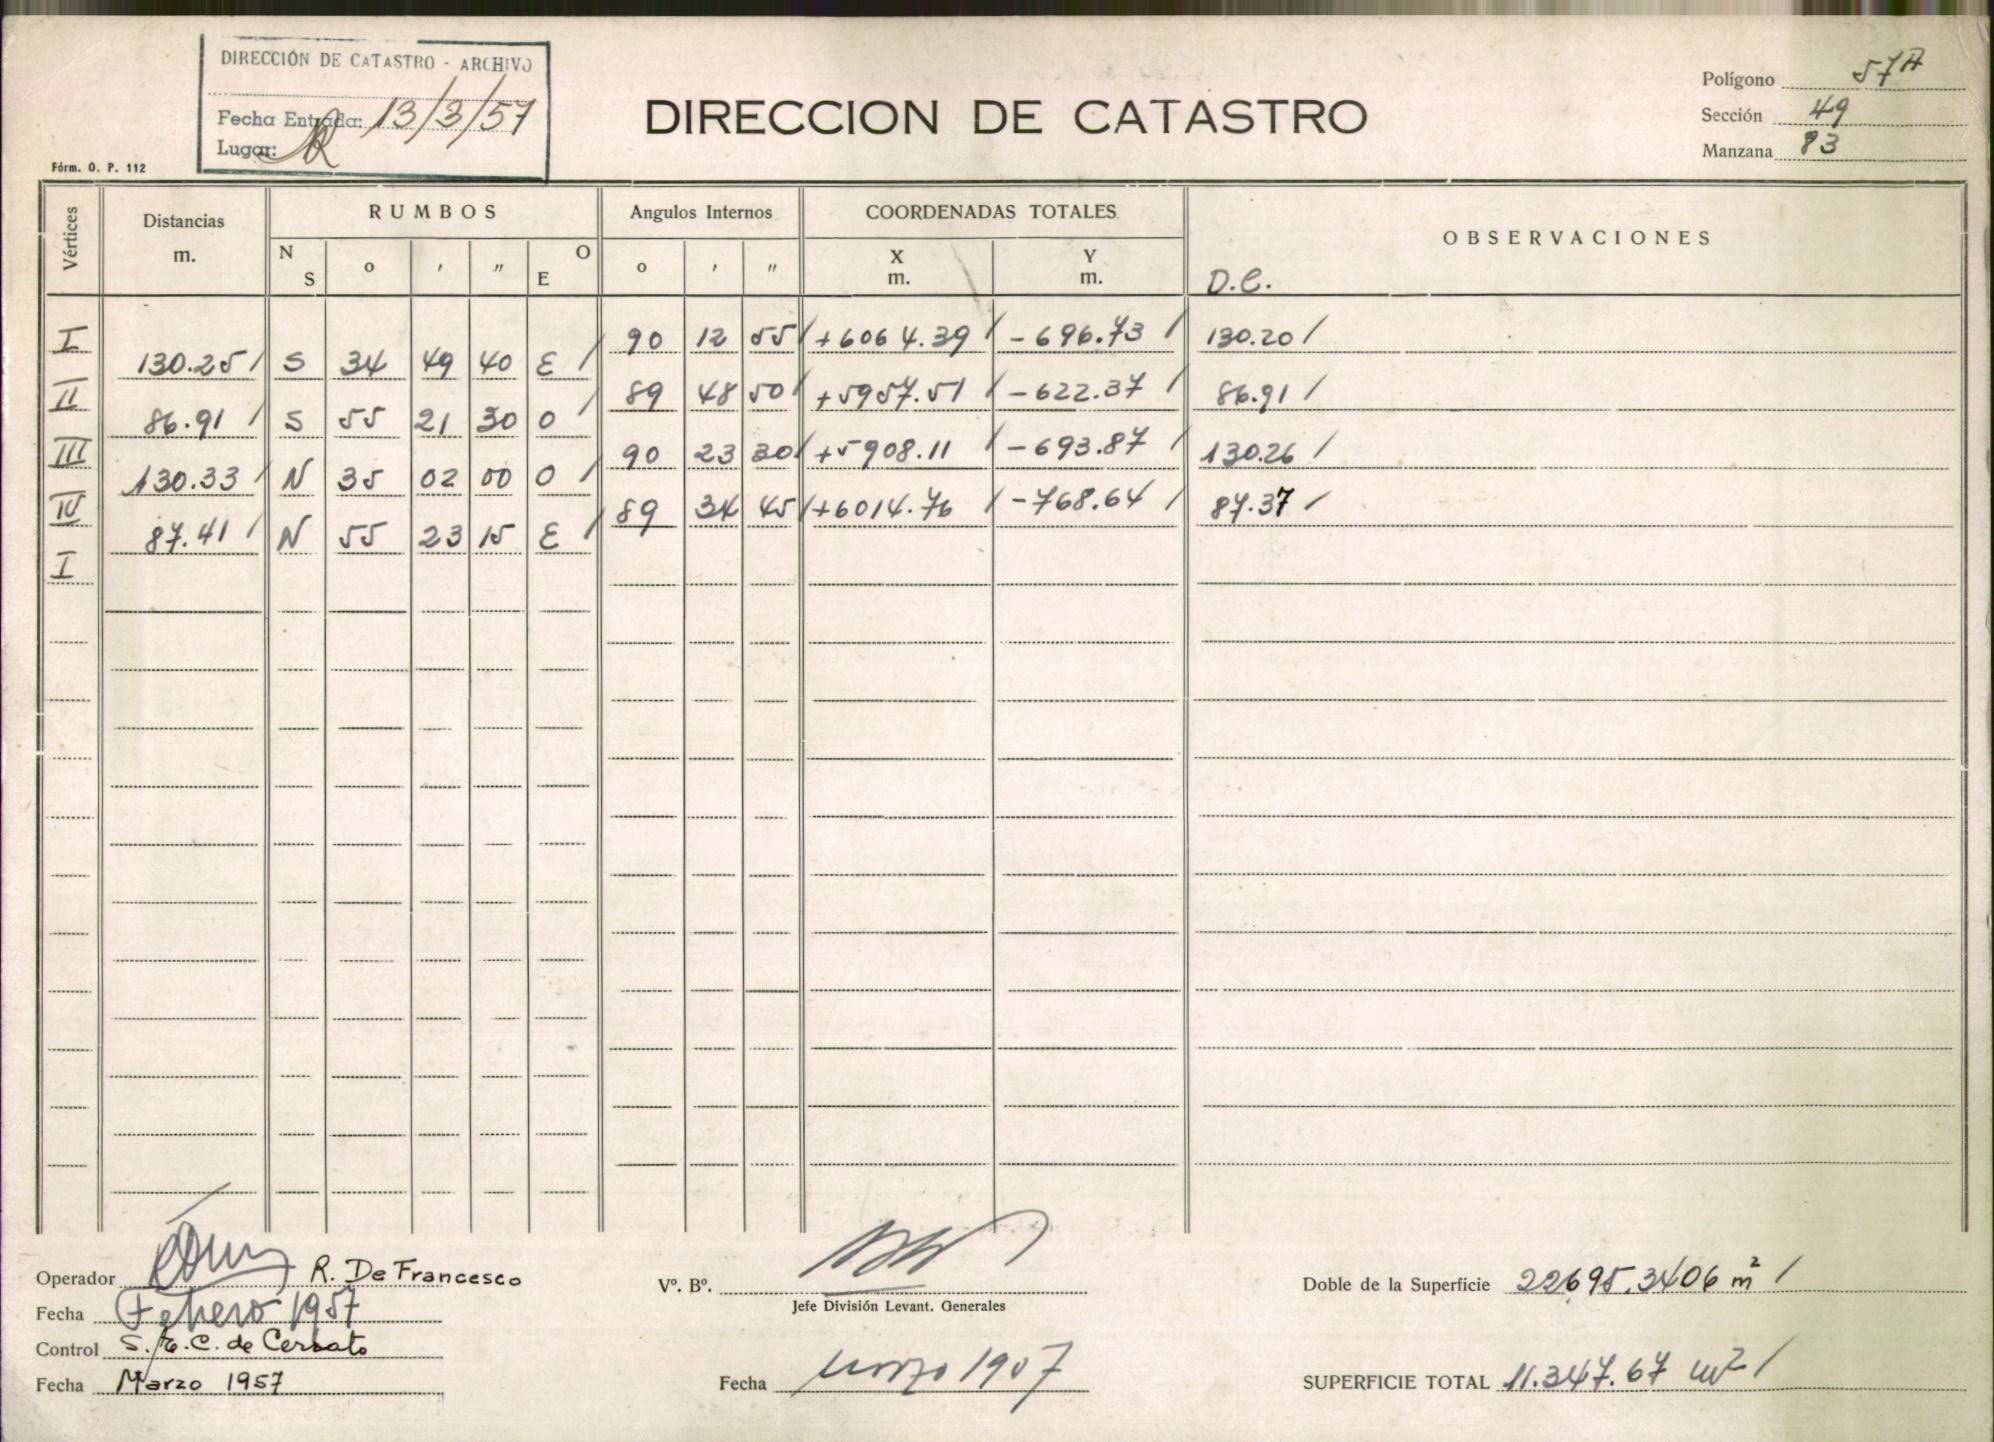 DIRECCIÓN DE CATASTRO - ARCHIVO
Fecha Entrada: 13/3/57
Lugar:
Fórm. O. P. 112
DIRECCION DE CATASTRO
Polígono 57A
Sección 49
Manzana 83
Vértices Distancias m. RUMBOS Angulos Internos COORDENADAS TOTALES OBSERVACIONES
N S o ' " O E o ' " X m. Y m. D.C.
I 90 12 55 +6064.39 -696.73 130.20
130.25 S 34 49 40 E
II 89 48 50 +5957.51 -622.37 86.91
86.91 S 55 21 30 O
III 90 23 30 +5908.11 -693.87 130.26
130.33 N 35 02 00 O
IV 89 34 45 +6014.76 -768.64 87.37
87.41 N 55 23 15 E
I
Operador R. De Francesco
Fecha Febrero 1957
Control S. E. C. de Cersato
Fecha Marzo 1957
Vº. Bº.
Jefe División Levant. Generales
Fecha marzo 1957
Doble de la Superficie 22695.3406 m²
SUPERFICIE TOTAL 11.347.67 m²